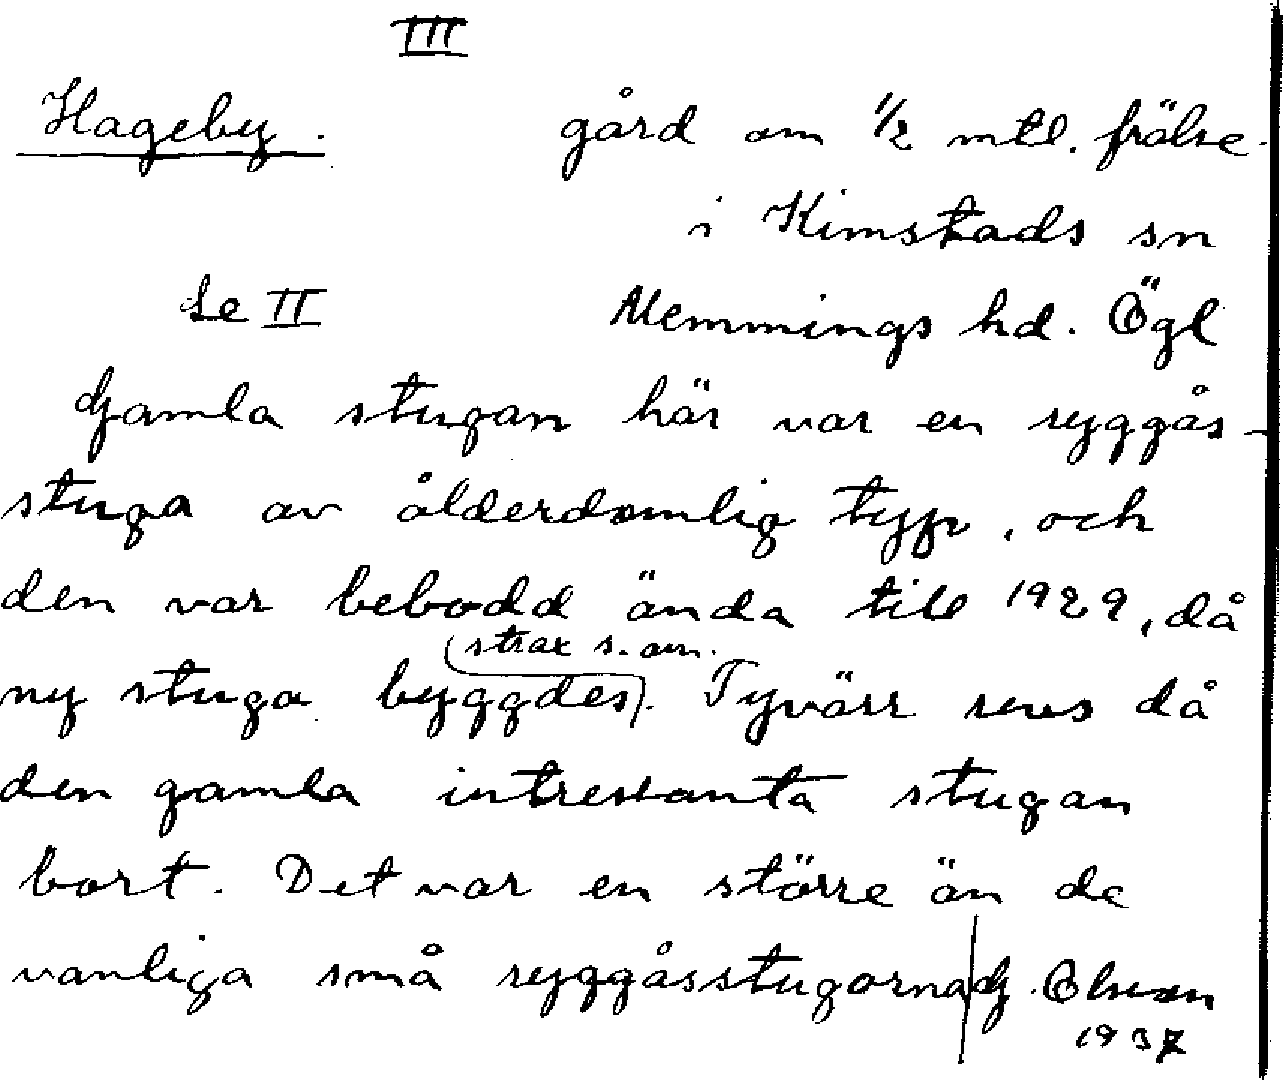 III
Hageby. gård om 1/2 mtl. frälse.
i Kimstads sn
Se II Memmings hd. Ögl
Gamla stugan här var en ryggås-
stuga av ålderdomlig typ, och
den var bebodd ända till 1929, då
strax s. om.
ny stuga byggdes). Tyvärr revs då
den gamla intressanta stugan
bort. Det var en större än de
vanliga små ryggåsstugorna G. Olsson
1937